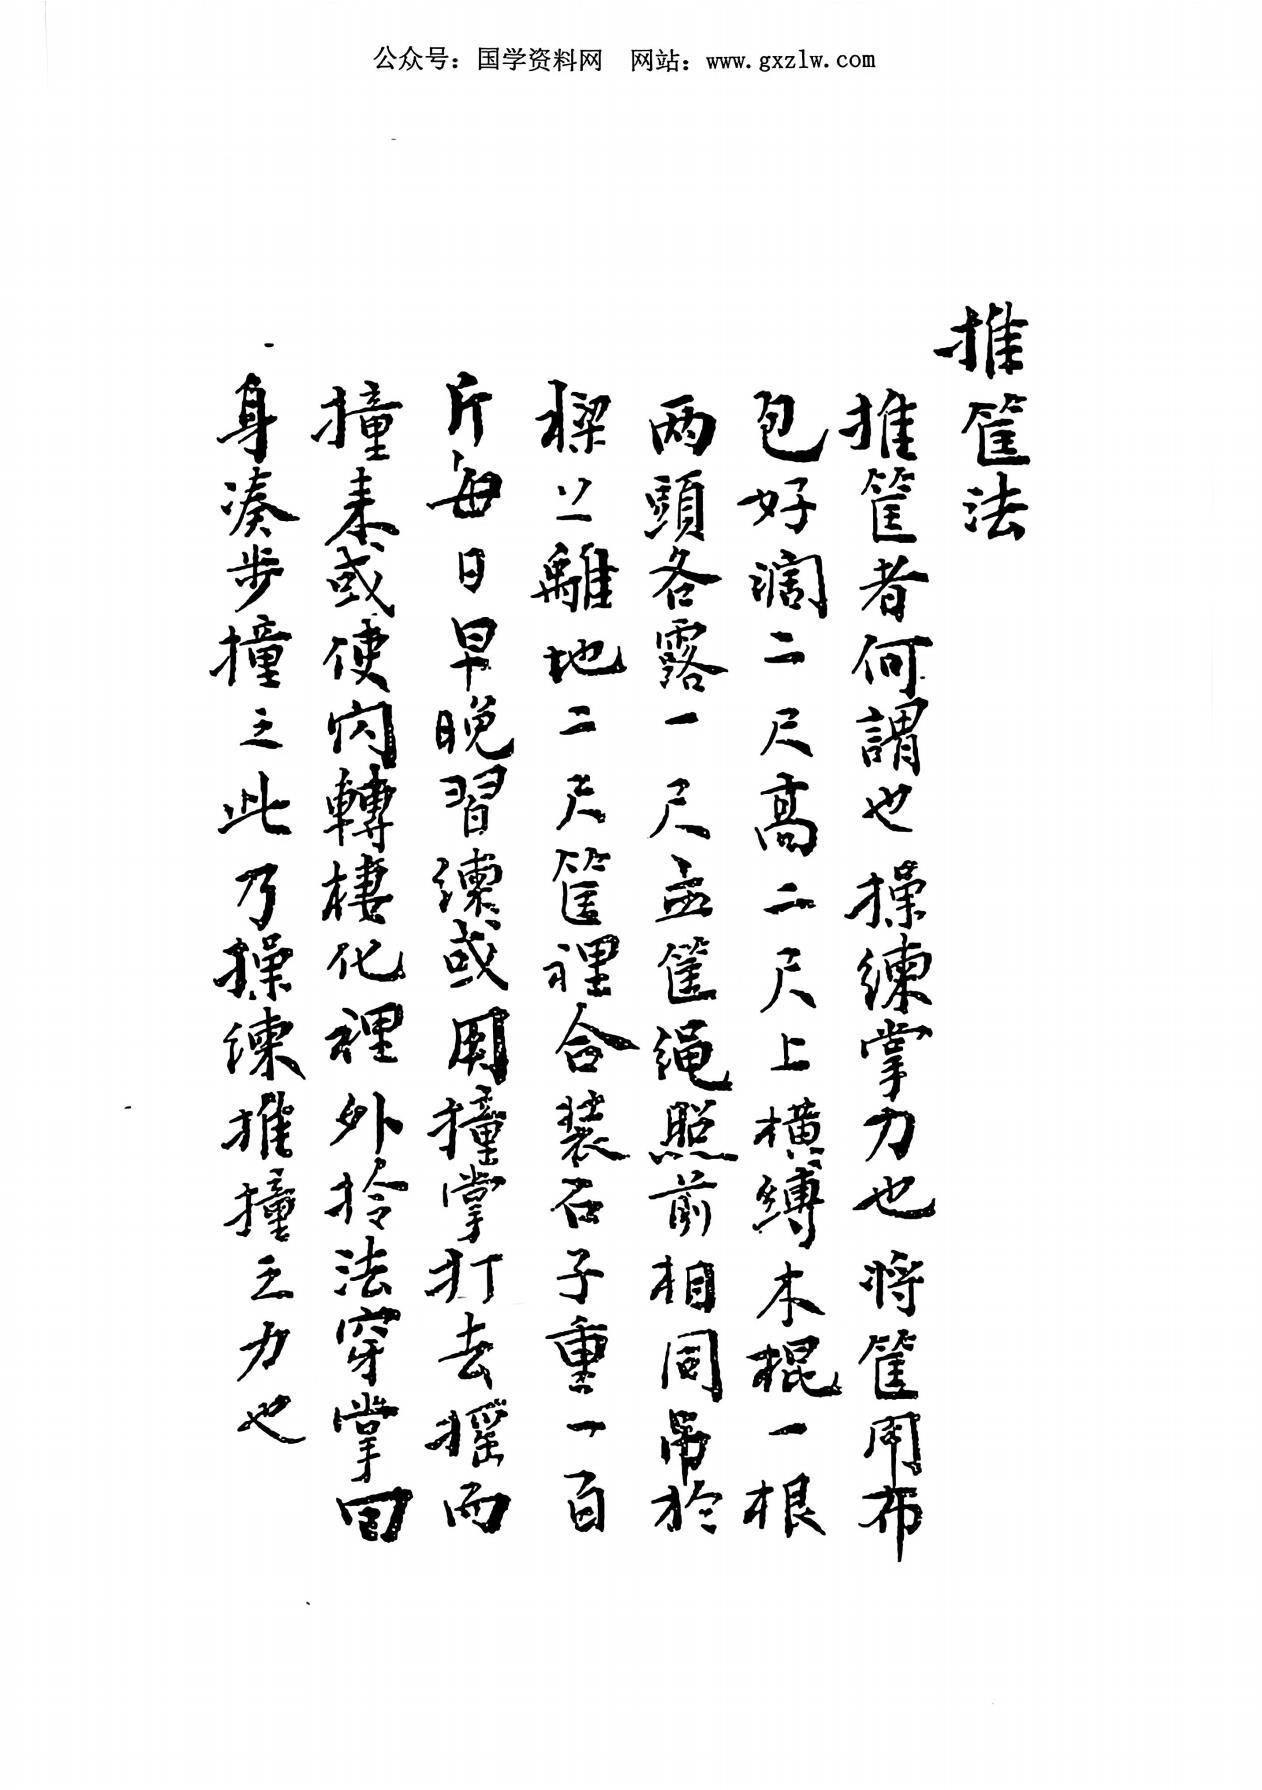 公众号：国学资料网　网站：www.gxzlw.com
推筐法
推筐者何謂也操練掌力也將筐用布
包好濶二尺高二尺上橫縛木棍一根
两頭各露一尺孟筐繩照前相同吊於
樑上離地二尺筐裡合装石子重一百
斤每日早晚習練或用撞掌打去摇而
撞来或使内轉棲化裡外拎法穿掌回
身凑步撞之此乃操練推撞之力也